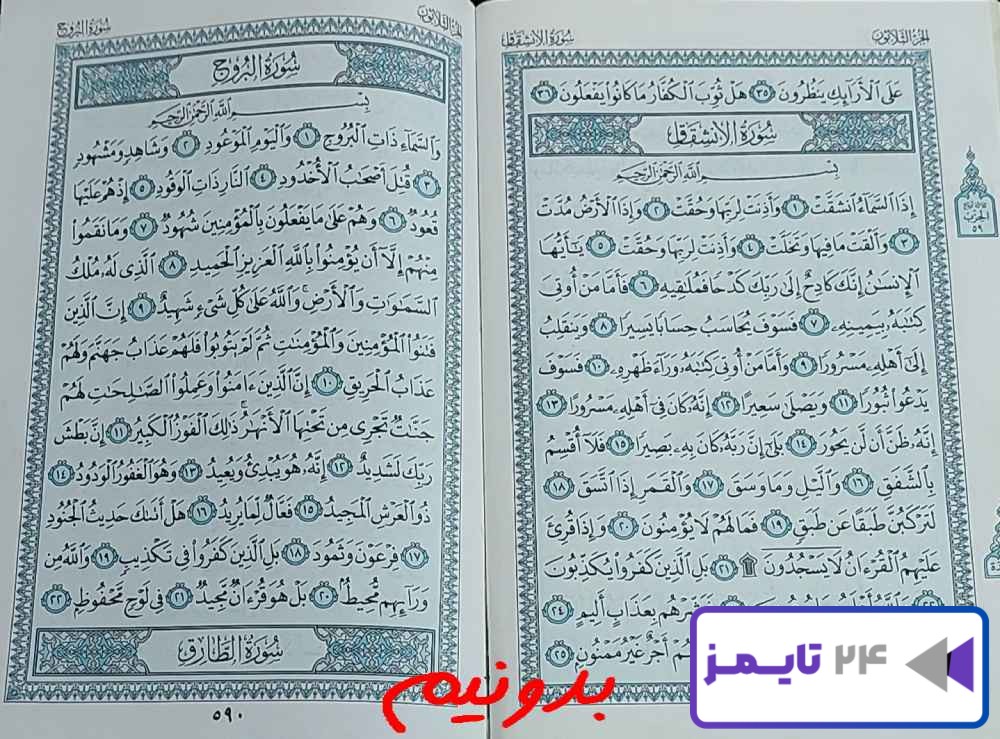 الجزء الثلاثون
سورة الانشقاق
عَلَى ٱلْأَرَآئِكِ يَنظُرُونَ ٣٥ هَلْ ثُوِّبَ ٱلْكُفَّارُ مَا كَانُوا۟ يَفْعَلُونَ ٣٦
سُورَةُ الانشِقَاقِ
بِسْمِ ٱللَّهِ ٱلرَّحْمَٰنِ ٱلرَّحِيمِ
إِذَا ٱلسَّمَآءُ ٱنشَقَّتْ ١ وَأَذِنَتْ لِرَبِّهَا وَحُقَّتْ ٢ وَإِذَا ٱلْأَرْضُ مُدَّتْ
٣ وَأَلْقَتْ مَا فِيهَا وَتَخَلَّتْ ٤ وَأَذِنَتْ لِرَبِّهَا وَحُقَّتْ ٥ يَٰٓأَيُّهَا
ٱلْإِنسَٰنُ إِنَّكَ كَادِحٌ إِلَىٰ رَبِّكَ كَدْحًا فَمُلَٰقِيهِ ٦ فَأَمَّا مَنْ أُوتِىَ
كِتَٰبَهُۥ بِيَمِينِهِۦ ٧ فَسَوْفَ يُحَاسَبُ حِسَابًا يَسِيرًا ٨ وَيَنقَلِبُ
إِلَىٰٓ أَهْلِهِۦ مَسْرُورًا ٩ وَأَمَّا مَنْ أُوتِىَ كِتَٰبَهُۥ وَرَآءَ ظَهْرِهِۦ ١٠ فَسَوْفَ
يَدْعُوا۟ ثُبُورًا ١١ وَيَصْلَىٰ سَعِيرًا ١٢ إِنَّهُۥ كَانَ فِىٓ أَهْلِهِۦ مَسْرُورًا ١٣
إِنَّهُۥ ظَنَّ أَن لَّن يَحُورَ ١٤ بَلَىٰٓ إِنَّ رَبَّهُۥ كَانَ بِهِۦ بَصِيرًا ١٥ فَلَآ أُقْسِمُ
بِٱلشَّفَقِ ١٦ وَٱلَّيْلِ وَمَا وَسَقَ ١٧ وَٱلْقَمَرِ إِذَا ٱتَّسَقَ ١٨
لَتَرْكَبُنَّ طَبَقًا عَن طَبَقٍ ١٩ فَمَا لَهُمْ لَا يُؤْمِنُونَ ٢٠ وَإِذَا قُرِئَ
عَلَيْهِمُ ٱلْقُرْءَانُ لَا يَسْجُدُونَ ۩ ٢١ بَلِ ٱلَّذِينَ كَفَرُوا۟ يُكَذِّبُونَ
٢٢ بِعَذَابٍ أَلِيمٍ ٢٤
أَجْرٌ غَيْرُ مَمْنُونٍ ٢٥
الحزب
٥٩
الجزء الثلاثون
سورة البروج
سُورَةُ البُرُوجِ
بِسْمِ ٱللَّهِ ٱلرَّحْمَٰنِ ٱلرَّحِيمِ
وَٱلسَّمَآءِ ذَاتِ ٱلْبُرُوجِ ١ وَٱلْيَوْمِ ٱلْمَوْعُودِ ٢ وَشَاهِدٍ وَمَشْهُودٍ
٣ قُتِلَ أَصْحَٰبُ ٱلْأُخْدُودِ ٤ ٱلنَّارِ ذَاتِ ٱلْوَقُودِ ٥ إِذْ هُمْ عَلَيْهَا
قُعُودٌ ٦ وَهُمْ عَلَىٰ مَا يَفْعَلُونَ بِٱلْمُؤْمِنِينَ شُهُودٌ ٧ وَمَا نَقَمُوا۟
مِنْهُمْ إِلَّآ أَن يُؤْمِنُوا۟ بِٱللَّهِ ٱلْعَزِيزِ ٱلْحَمِيدِ ٨ ٱلَّذِى لَهُۥ مُلْكُ
ٱلسَّمَٰوَٰتِ وَٱلْأَرْضِ ۚ وَٱللَّهُ عَلَىٰ كُلِّ شَىْءٍ شَهِيدٌ ٩ إِنَّ ٱلَّذِينَ
فَتَنُوا۟ ٱلْمُؤْمِنِينَ وَٱلْمُؤْمِنَٰتِ ثُمَّ لَمْ يَتُوبُوا۟ فَلَهُمْ عَذَابُ جَهَنَّمَ وَلَهُمْ
عَذَابُ ٱلْحَرِيقِ ١٠ إِنَّ ٱلَّذِينَ ءَامَنُوا۟ وَعَمِلُوا۟ ٱلصَّٰلِحَٰتِ لَهُمْ
جَنَّٰتٌ تَجْرِى مِن تَحْتِهَا ٱلْأَنْهَٰرُ ۚ ذَٰلِكَ ٱلْفَوْزُ ٱلْكَبِيرُ ١١ إِنَّ بَطْشَ
رَبِّكَ لَشَدِيدٌ ١٢ إِنَّهُۥ هُوَ يُبْدِئُ وَيُعِيدُ ١٣ وَهُوَ ٱلْغَفُورُ ٱلْوَدُودُ ١٤
ذُو ٱلْعَرْشِ ٱلْمَجِيدُ ١٥ فَعَّالٌ لِّمَا يُرِيدُ ١٦ هَلْ أَتَىٰكَ حَدِيثُ ٱلْجُنُودِ
١٧ فِرْعَوْنَ وَثَمُودَ ١٨ بَلِ ٱلَّذِينَ كَفَرُوا۟ فِى تَكْذِيبٍ ١٩ وَٱللَّهُ مِن
وَرَآئِهِم مُّحِيطٌۢ ٢٠ بَلْ هُوَ قُرْءَانٌ مَّجِيدٌ ٢١ فِى لَوْحٍ مَّحْفُوظٍۭ ٢٢
سُورَةُ الطَّارِقِ
٥٩٠
بدونیم
۲۴ تایمز